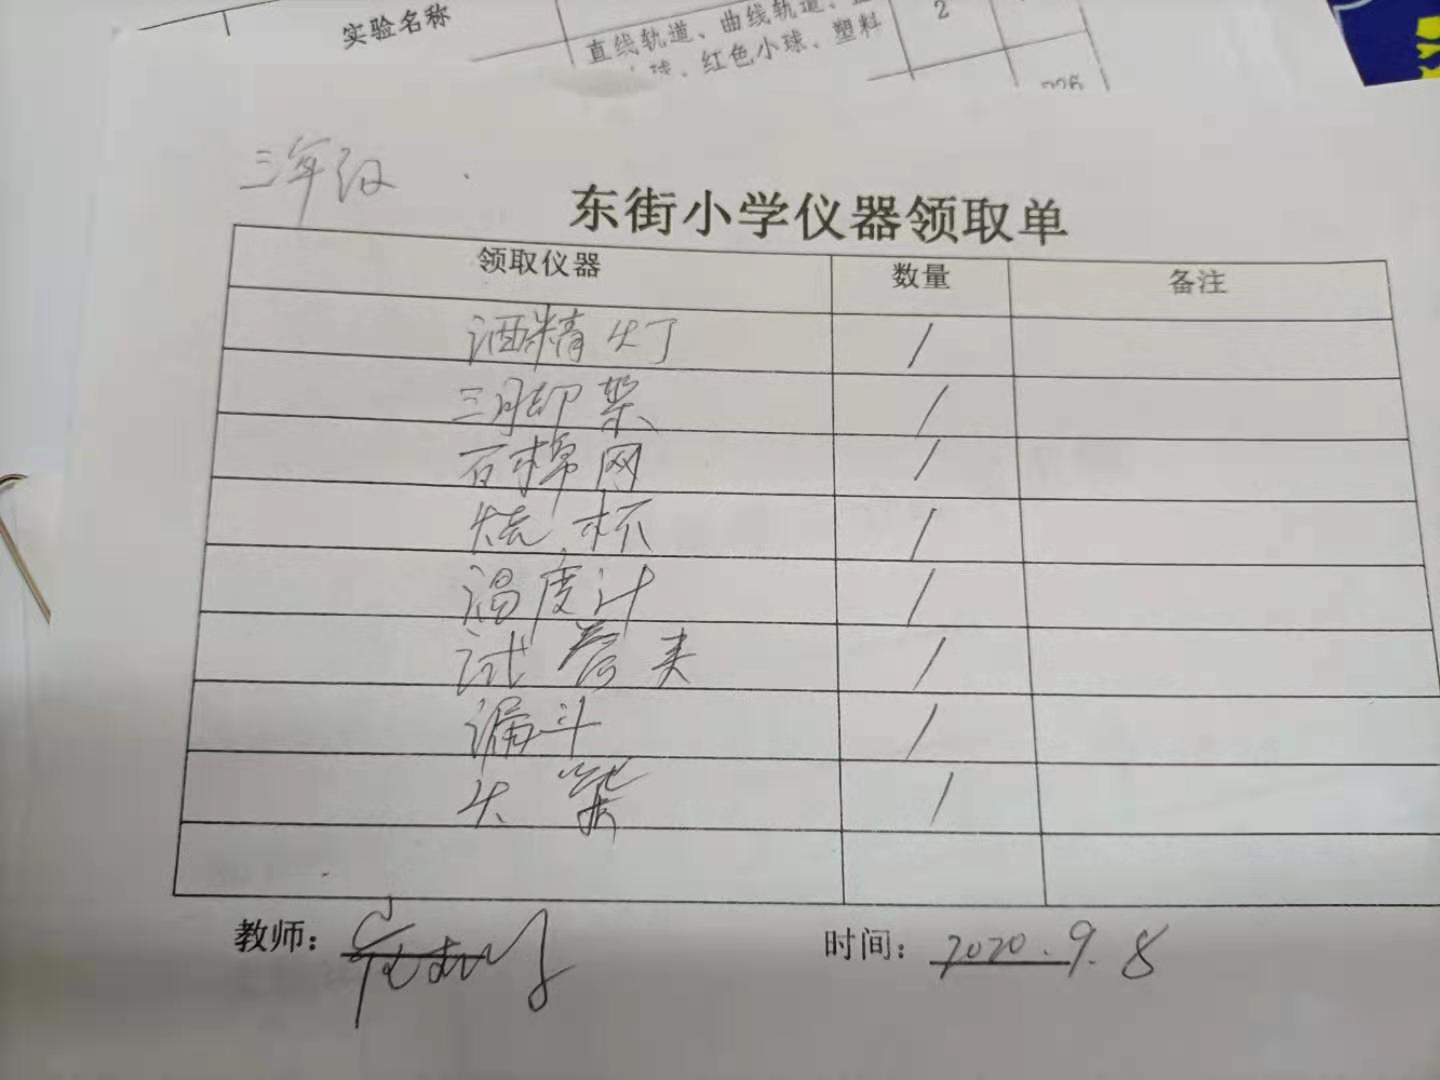 实验名称
直线轨道、曲线轨道、
球、红色小球、塑料
2
三年级
东街小学仪器领取单
领取仪器 数量 备注
酒精灯 1
三脚架 1
石棉网 1
烧杯 1
温度计 1
试管夹 1
漏斗 1
火柴 1
教师：
时间： 2020.9.8